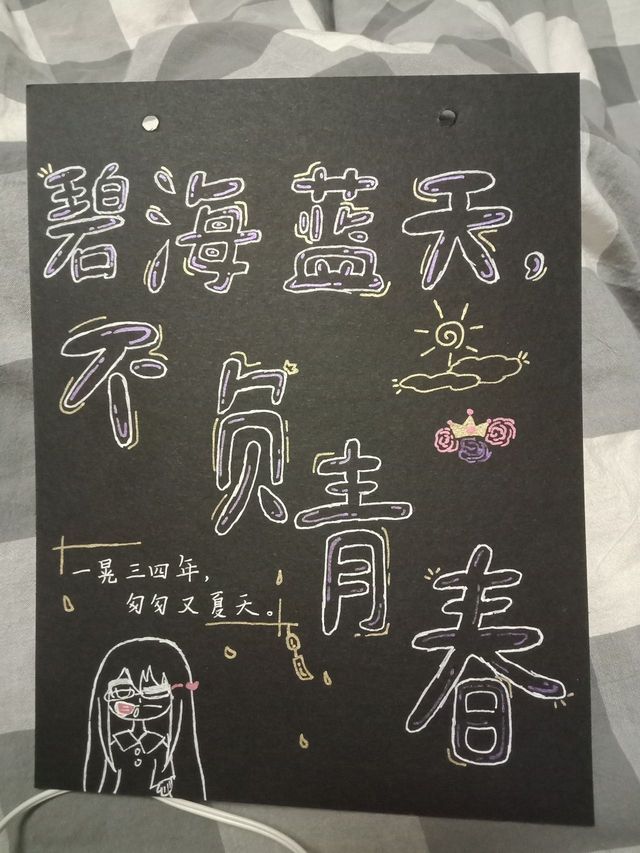 碧海蓝天,
不负青春
一晃三四年,
匆匆又夏天。